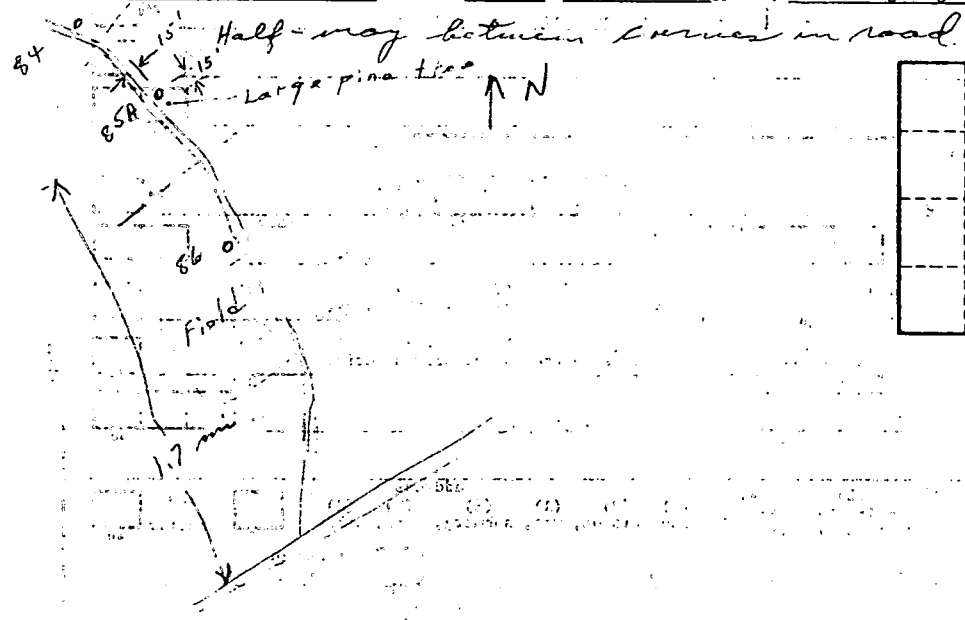 Half-way between curves in road.
15'
15'
84
Large pine tree
N
85A
86
Field
1.7 mi